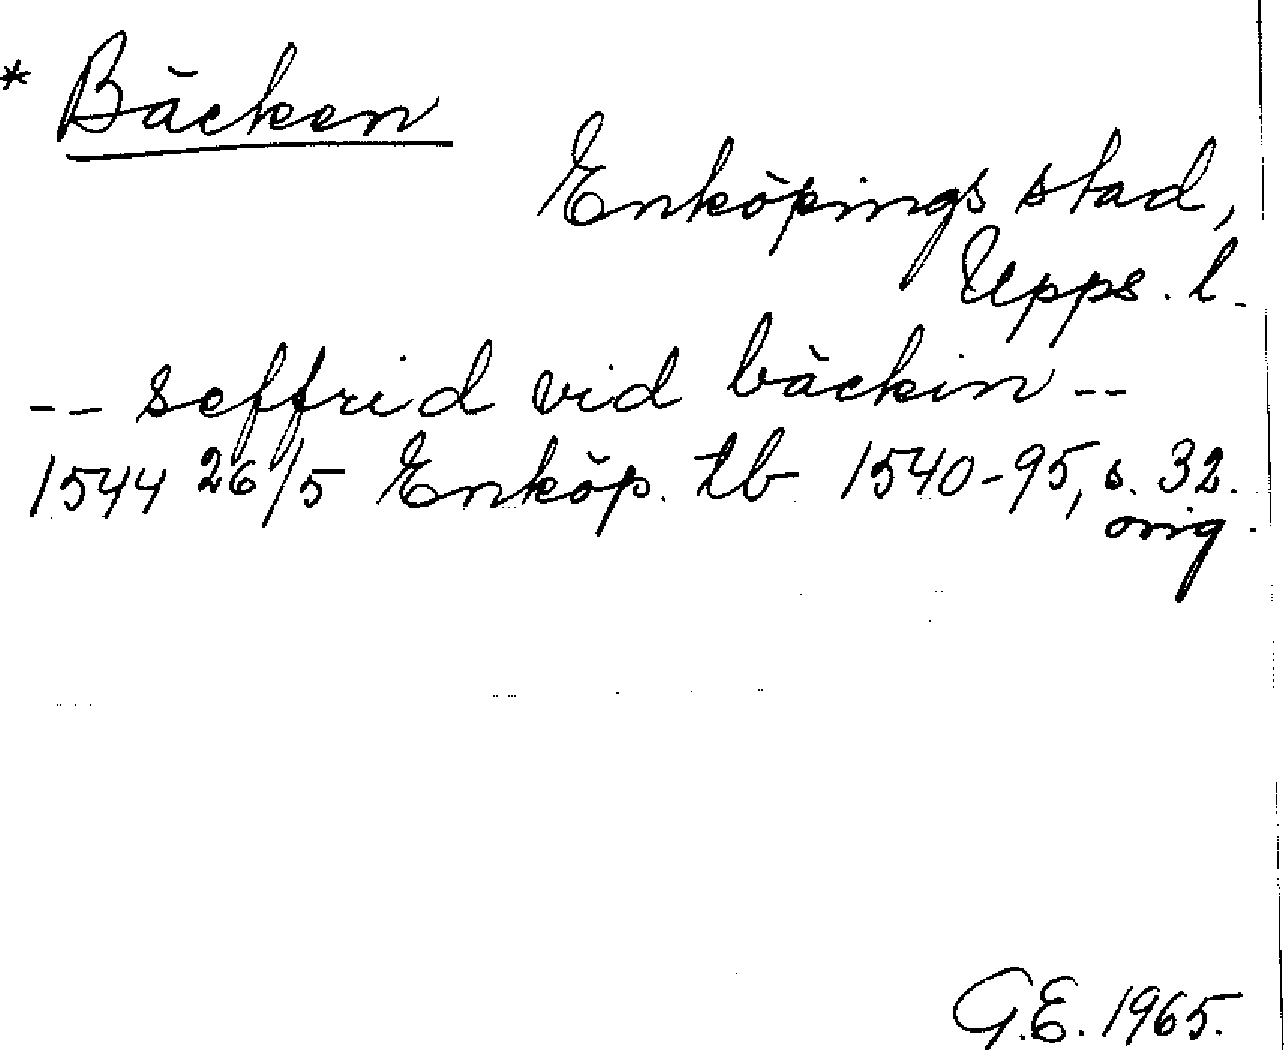 * Bäcken
Enköpings stad,
Upps. l.
-- seffrid vid bäckin --
1544 26/5 Enköp. tb 1540-95, s. 32.
orig.
G.E. 1965.